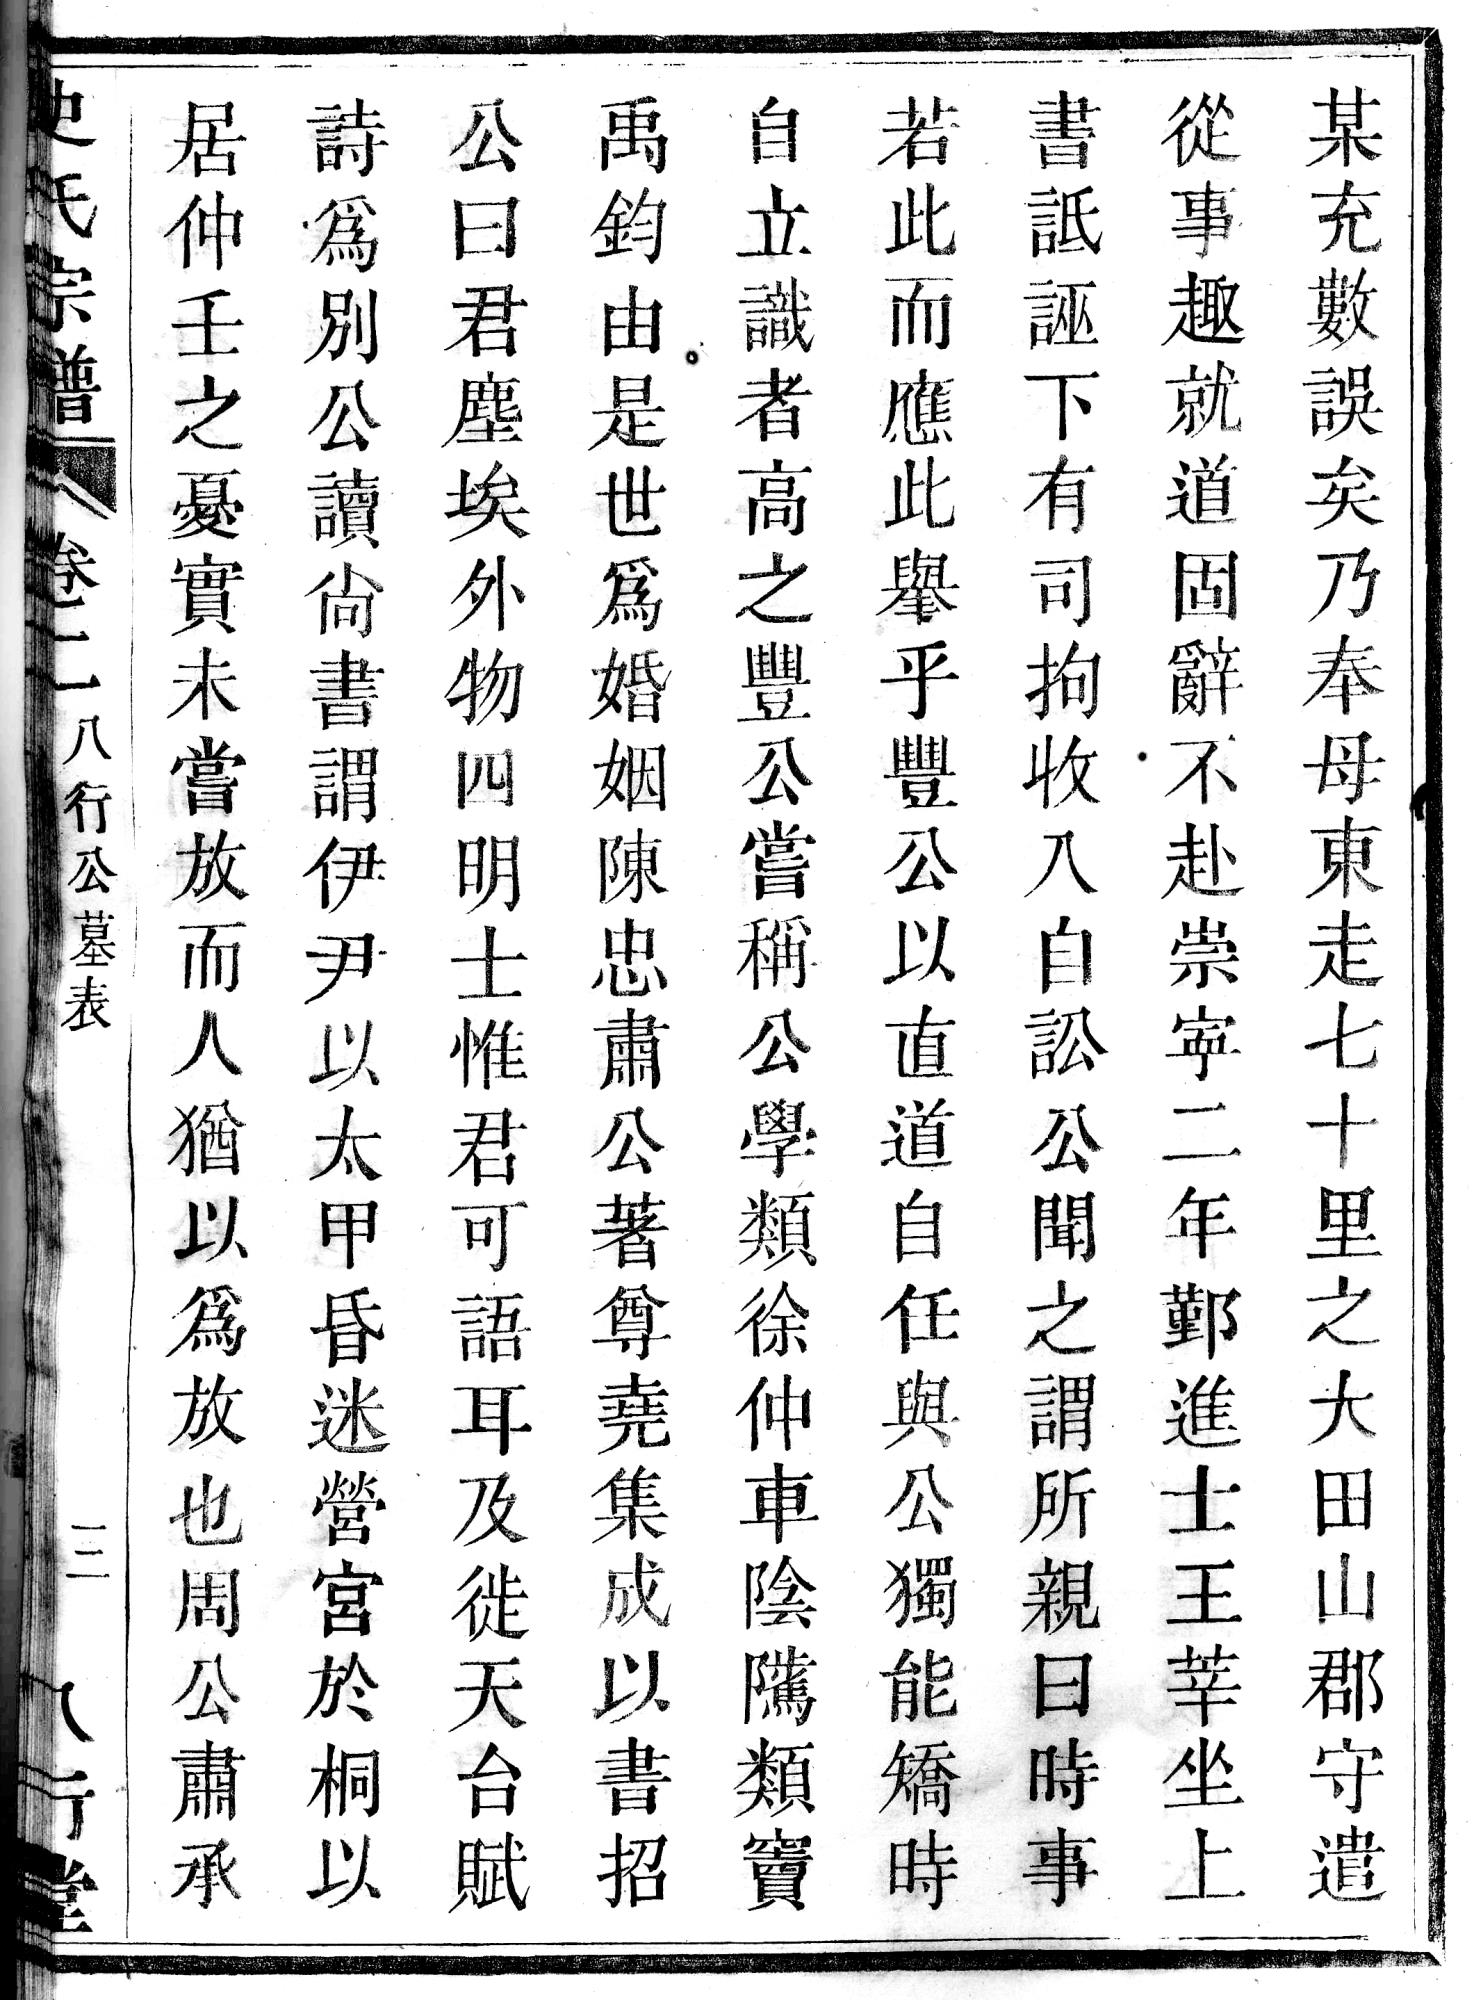 某充數誤矣乃奉母東走七十里之大田山郡守遣
從事趣就道固辭不赴崇寧二年鄞進士王莘坐上
書詆誣下有司拘收入自訟公聞之謂所親曰時事
若此而應此舉乎豐公以直道自任與公獨能矯時
自立識者高之豐公嘗稱公學類徐仲車陰隲類竇
禹鈞由是世爲婚姻陳忠肅公著尊堯集成以書招
公曰君塵埃外物四明士惟君可語耳及徙天台賦
詩爲別公讀尙書謂伊尹以太甲昏迷營宮於桐以
居仲壬之憂實未嘗放而人猶以爲放也周公肅承
史氏宗譜 卷二 八行公墓表 三 八行堂